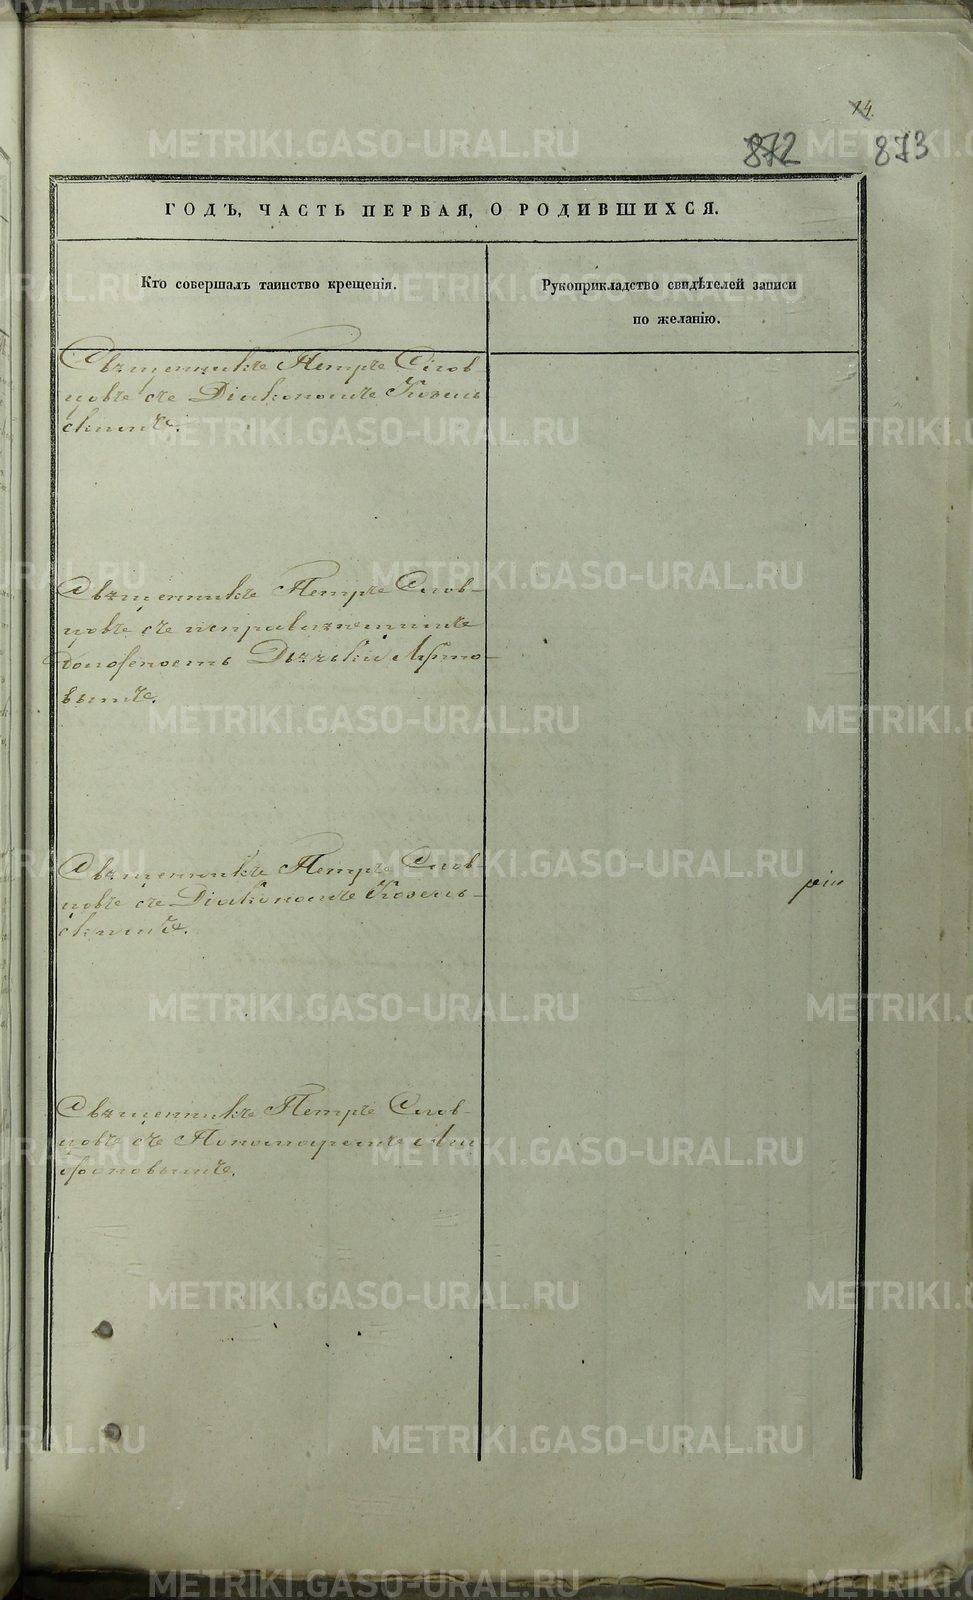 74.
872 873
ГОДЪ, ЧАСТЬ ПЕРВАЯ, О РОДИВШИХСЯ.
Кто совершалъ таинство крещенія.
Рукоприкладство свидѣтелей записи
по желанію.
Священникъ Петръ Слов
цовъ съ Діакономъ Козель
скимъ.
Священникъ Петръ Слов-
цовъ съ исправляющимъ
должность Дьячка
вымъ.
Священникъ Петръ Слов-
цовъ съ Діакономъ Козель-
скимъ.
Священникъ Петръ Слов-
цовъ съ Пономаремъ
METRIKI.GASO-URAL.RU